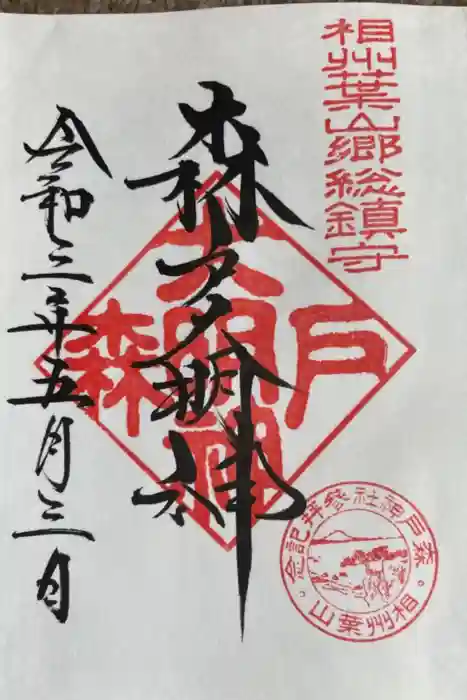 相州葉山郷総鎮守
森戸大明神
森戸大明神
令和三年五月三日
森戸神社參拝記念
相州葉山